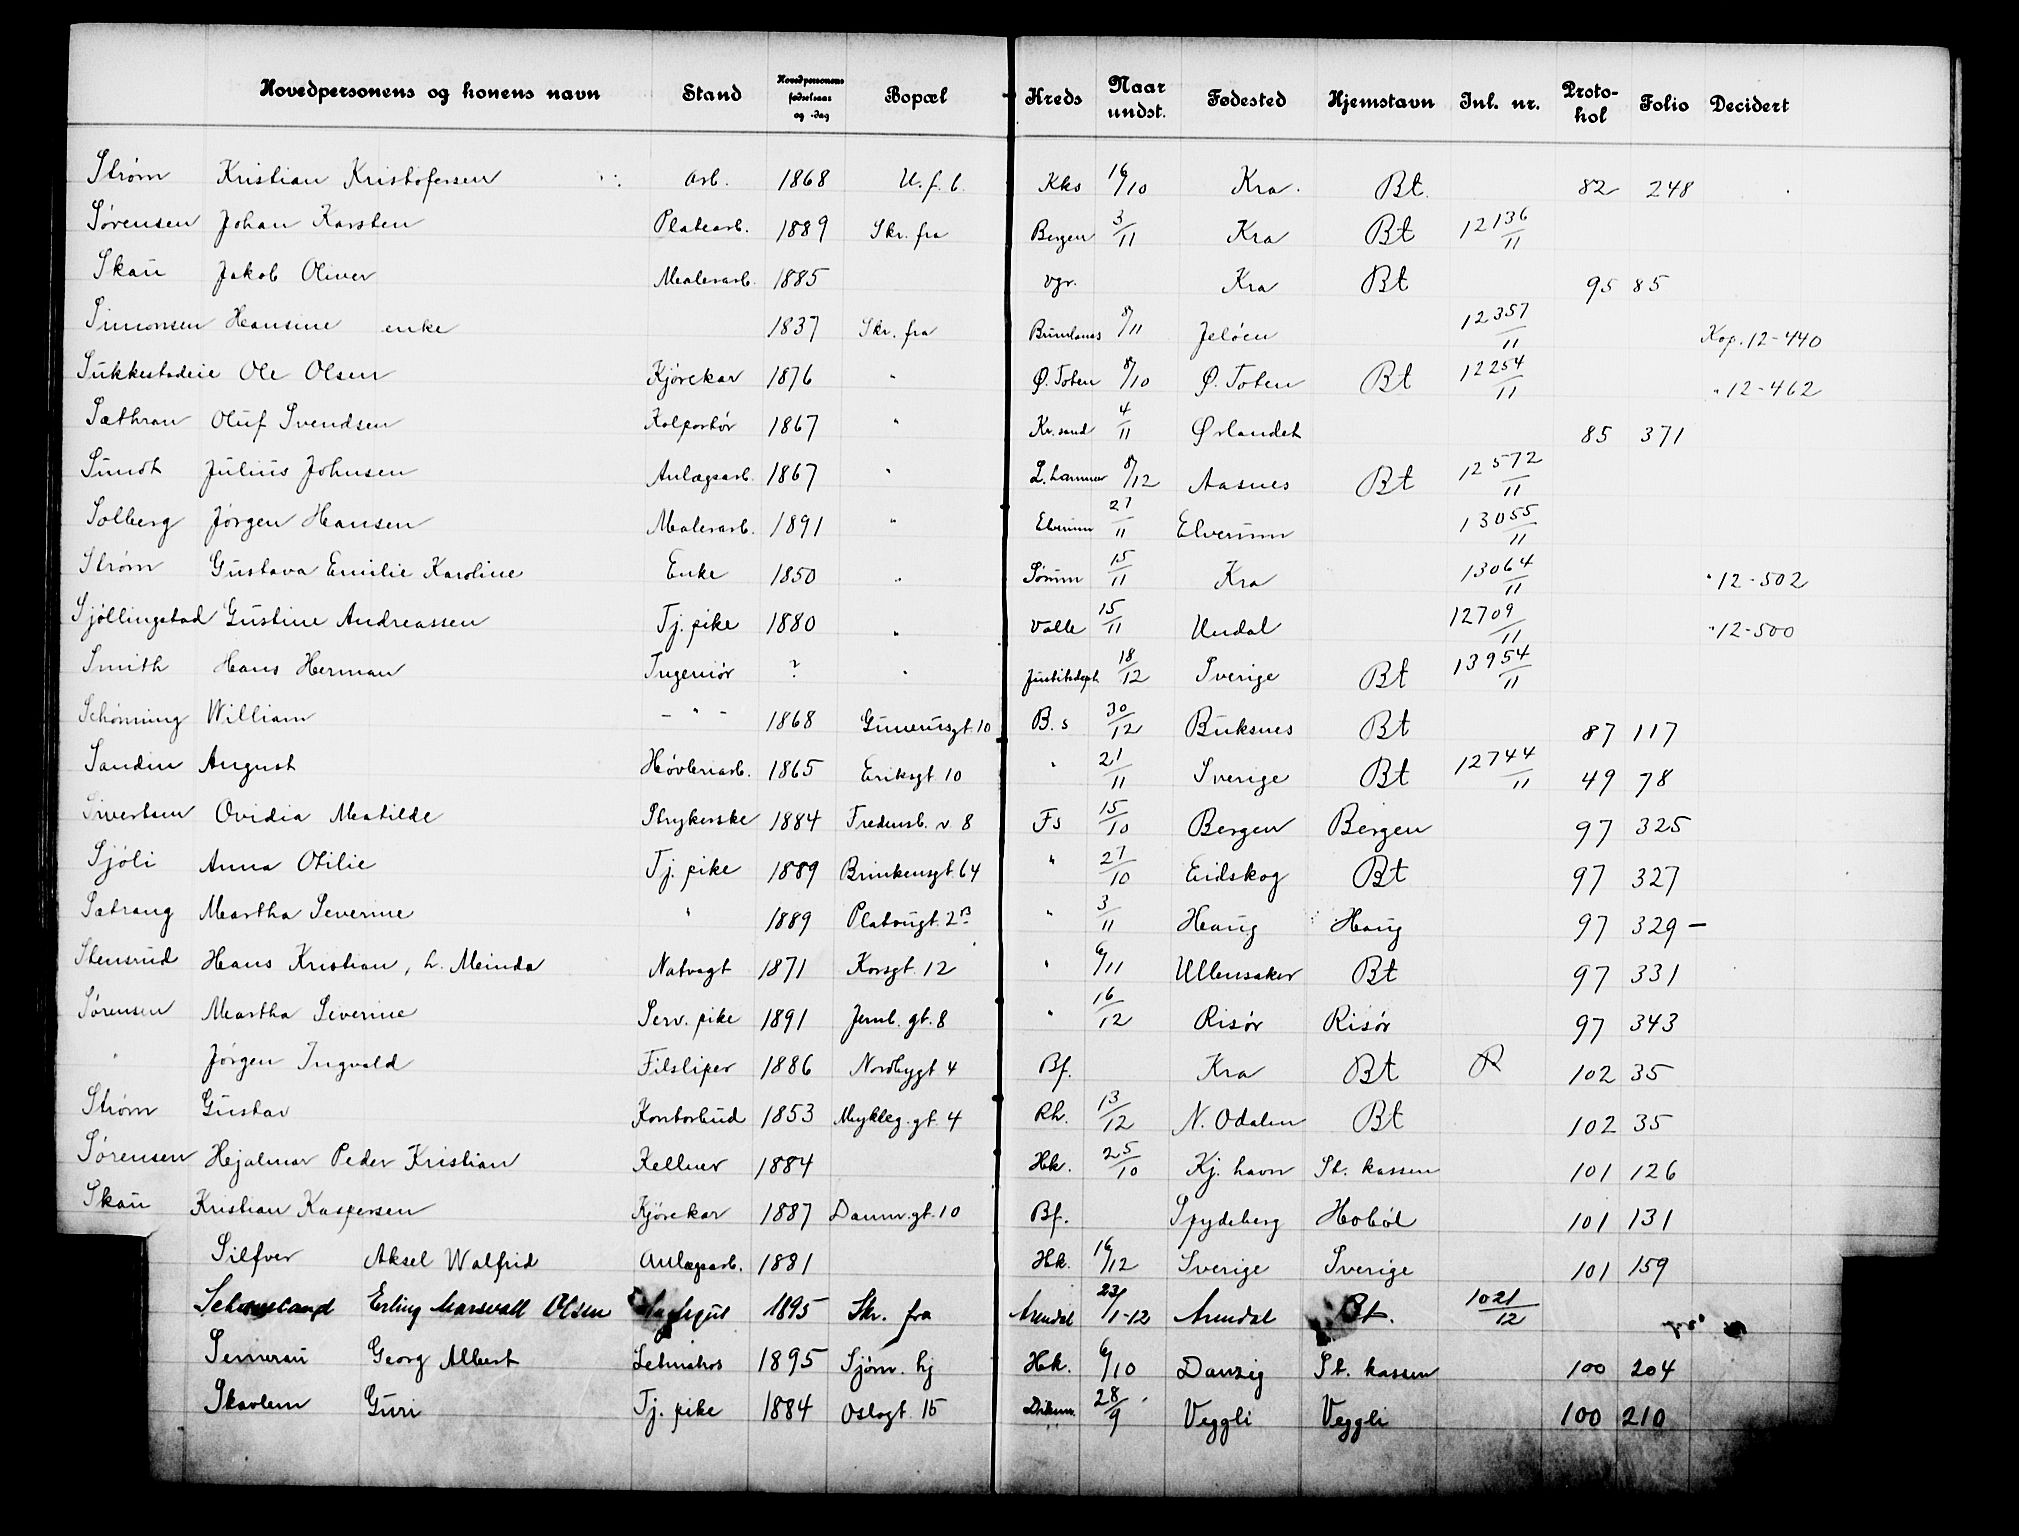 Hovedpersonens og konens navn Stand Hovedpersonens fødselsaar og -dag Bopæl Kreds Naar undst. Fødested Hjemstavn Inl. nr. Protokol Folio Decidert
Strøm Kristian Kristofersen Arb. 1868 U. f. b. Kks 16/10 Kra. Bt. 82 248
Sørensen Johan Karsten Platearb. 1889 Skr. fra Bergen 3/11 Kra Bt 12136/11
Skau Jakob Oliver Malerarb. 1885 Vgr. Kra Bt 95 85
Simonsen Hansine enke 1837 Skr. fra Brunlanes 8/11 Jeløen 12357/11 Kop. 12-440
Sukkestadeie Ole Olsen Kjørekar 1876 " Ø. Toten 8/10 Ø. Toten Bt 12254/11 " 12-462
Sæthran Oluf Svendsen Kolportør 1867 " Kr. sand 4/11 Ørlandet 85 371
Sundt Julius Johnsen Anlægsarb. 1867 " L. hammer 8/12 Aasnes Bt 12572/11
Solberg Jørgen Hansen Malerarb. 1891 " Elverum 27/11 Elverum 13055/11
Strøm Gustava Emilie Karoline Enke 1850 " Sørum 15/11 Kra 13064/11 " 12-502
Sjøllingstad Gustine Andreassen Tj. pike 1880 " Valle 15/11 Undal 12709/11 " 12-500
Smith Hans Herman Ingeniør ? " Justitsdept 18/12 Sverige Bt 13954/11
Schønning William - " - 1868 Gunerusgt. 10 B. s 30/12 Buksnes Bt 87 117
Sandin August Høvleriarb. 1865 Eriksgt. 10 " 21/11 Sverige Bt 12744/11 49 78
Sivertsen Ovidia Matilde Strykerske 1884 Fredensb. v 8 Fs 15/10 Bergen Bergen 97 325
Sjøli Anna Otilie Tj. pike 1889 Brinkensgt. 64 " 27/10 Eidskog Bt 97 327
Sætrang Martha Severine " 1889 Platougt. 2B " 3/11 Haug Haug 97 329 —
Stensrud Hans Kristian, h. Meinda Natvagt 1871 Korsgt. 12 " 6/11 Ullensaker Bt 97 331
Sørensen Martha Severine Serv. pike 1891 Jernb. gt. 8 " 16/12 Risør Risør 97 343
" Jørgen Ingvald Filsliper 1886 Nordbygt 4 Bf. Kra Bt R 102 35
Strøm Gustav Kontorbud 1853 Mykleg. gt. 4 Rh. 13/12 N. Odalen Bt 102 35
Sørensen Hejalmar Peder Kristian Kellner 1884 Hk. 25/10 Kj. havn St. kassen 101 126
Skau Kristian Kaspersen Kjørekar 1887 Danm. gt. 10 Bf. Spydeberg Hobøl 101 131
Silfver Aksel Walfrid Anlægsarb. 1881 Hk. 16/12 Sverige Sverige 101 159
Erling Marsvall Olsen 1895 Skr. fra Arendal 23/1-12 Arendal Bt. 1021/12
Semerau Georg Albert Letmatros 1895 Sjøm. hj Hk. 6/10 Danzig St. kassen 100 204
Skavlem Guri Tj. pike 1884 Oslogt. 15 Dr.hm. 28/9 Veggli Veggli 100 210